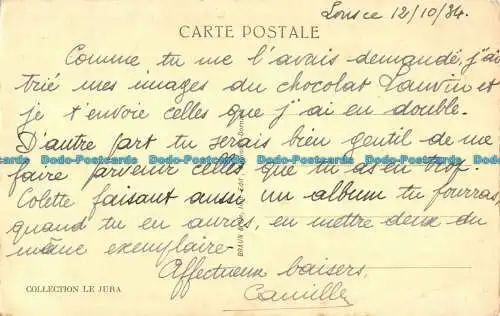 12/10/34.
CARTE POSTALE
Comme tu me l'avais demandé, j'ai
trié mes images du chocolat Lanvin et
je t'envoie celles que j'ai en double.
D'autre part tu serais bien gentil de me
faire parvenir celles que tu as en trop.
Colette faisant aussi un album tu pourras,
quand tu en auras, en mettre deux du
même exemplaire.
Affectueux baisers.
Camille
COLLECTION LE JURA
BRAUN
Dodo-Postcards Dodo-Postcards Dodo-Postcards Dodo-Postcards